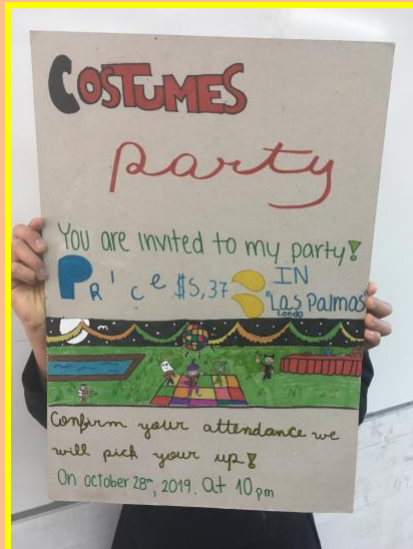 COSTUMES
party
You are invited to my party!
Price $5,37 IN
"Las Palmas"
Londo
Confirm your attendance we
will pick your up!
On october 28th, 2019. at 10 pm